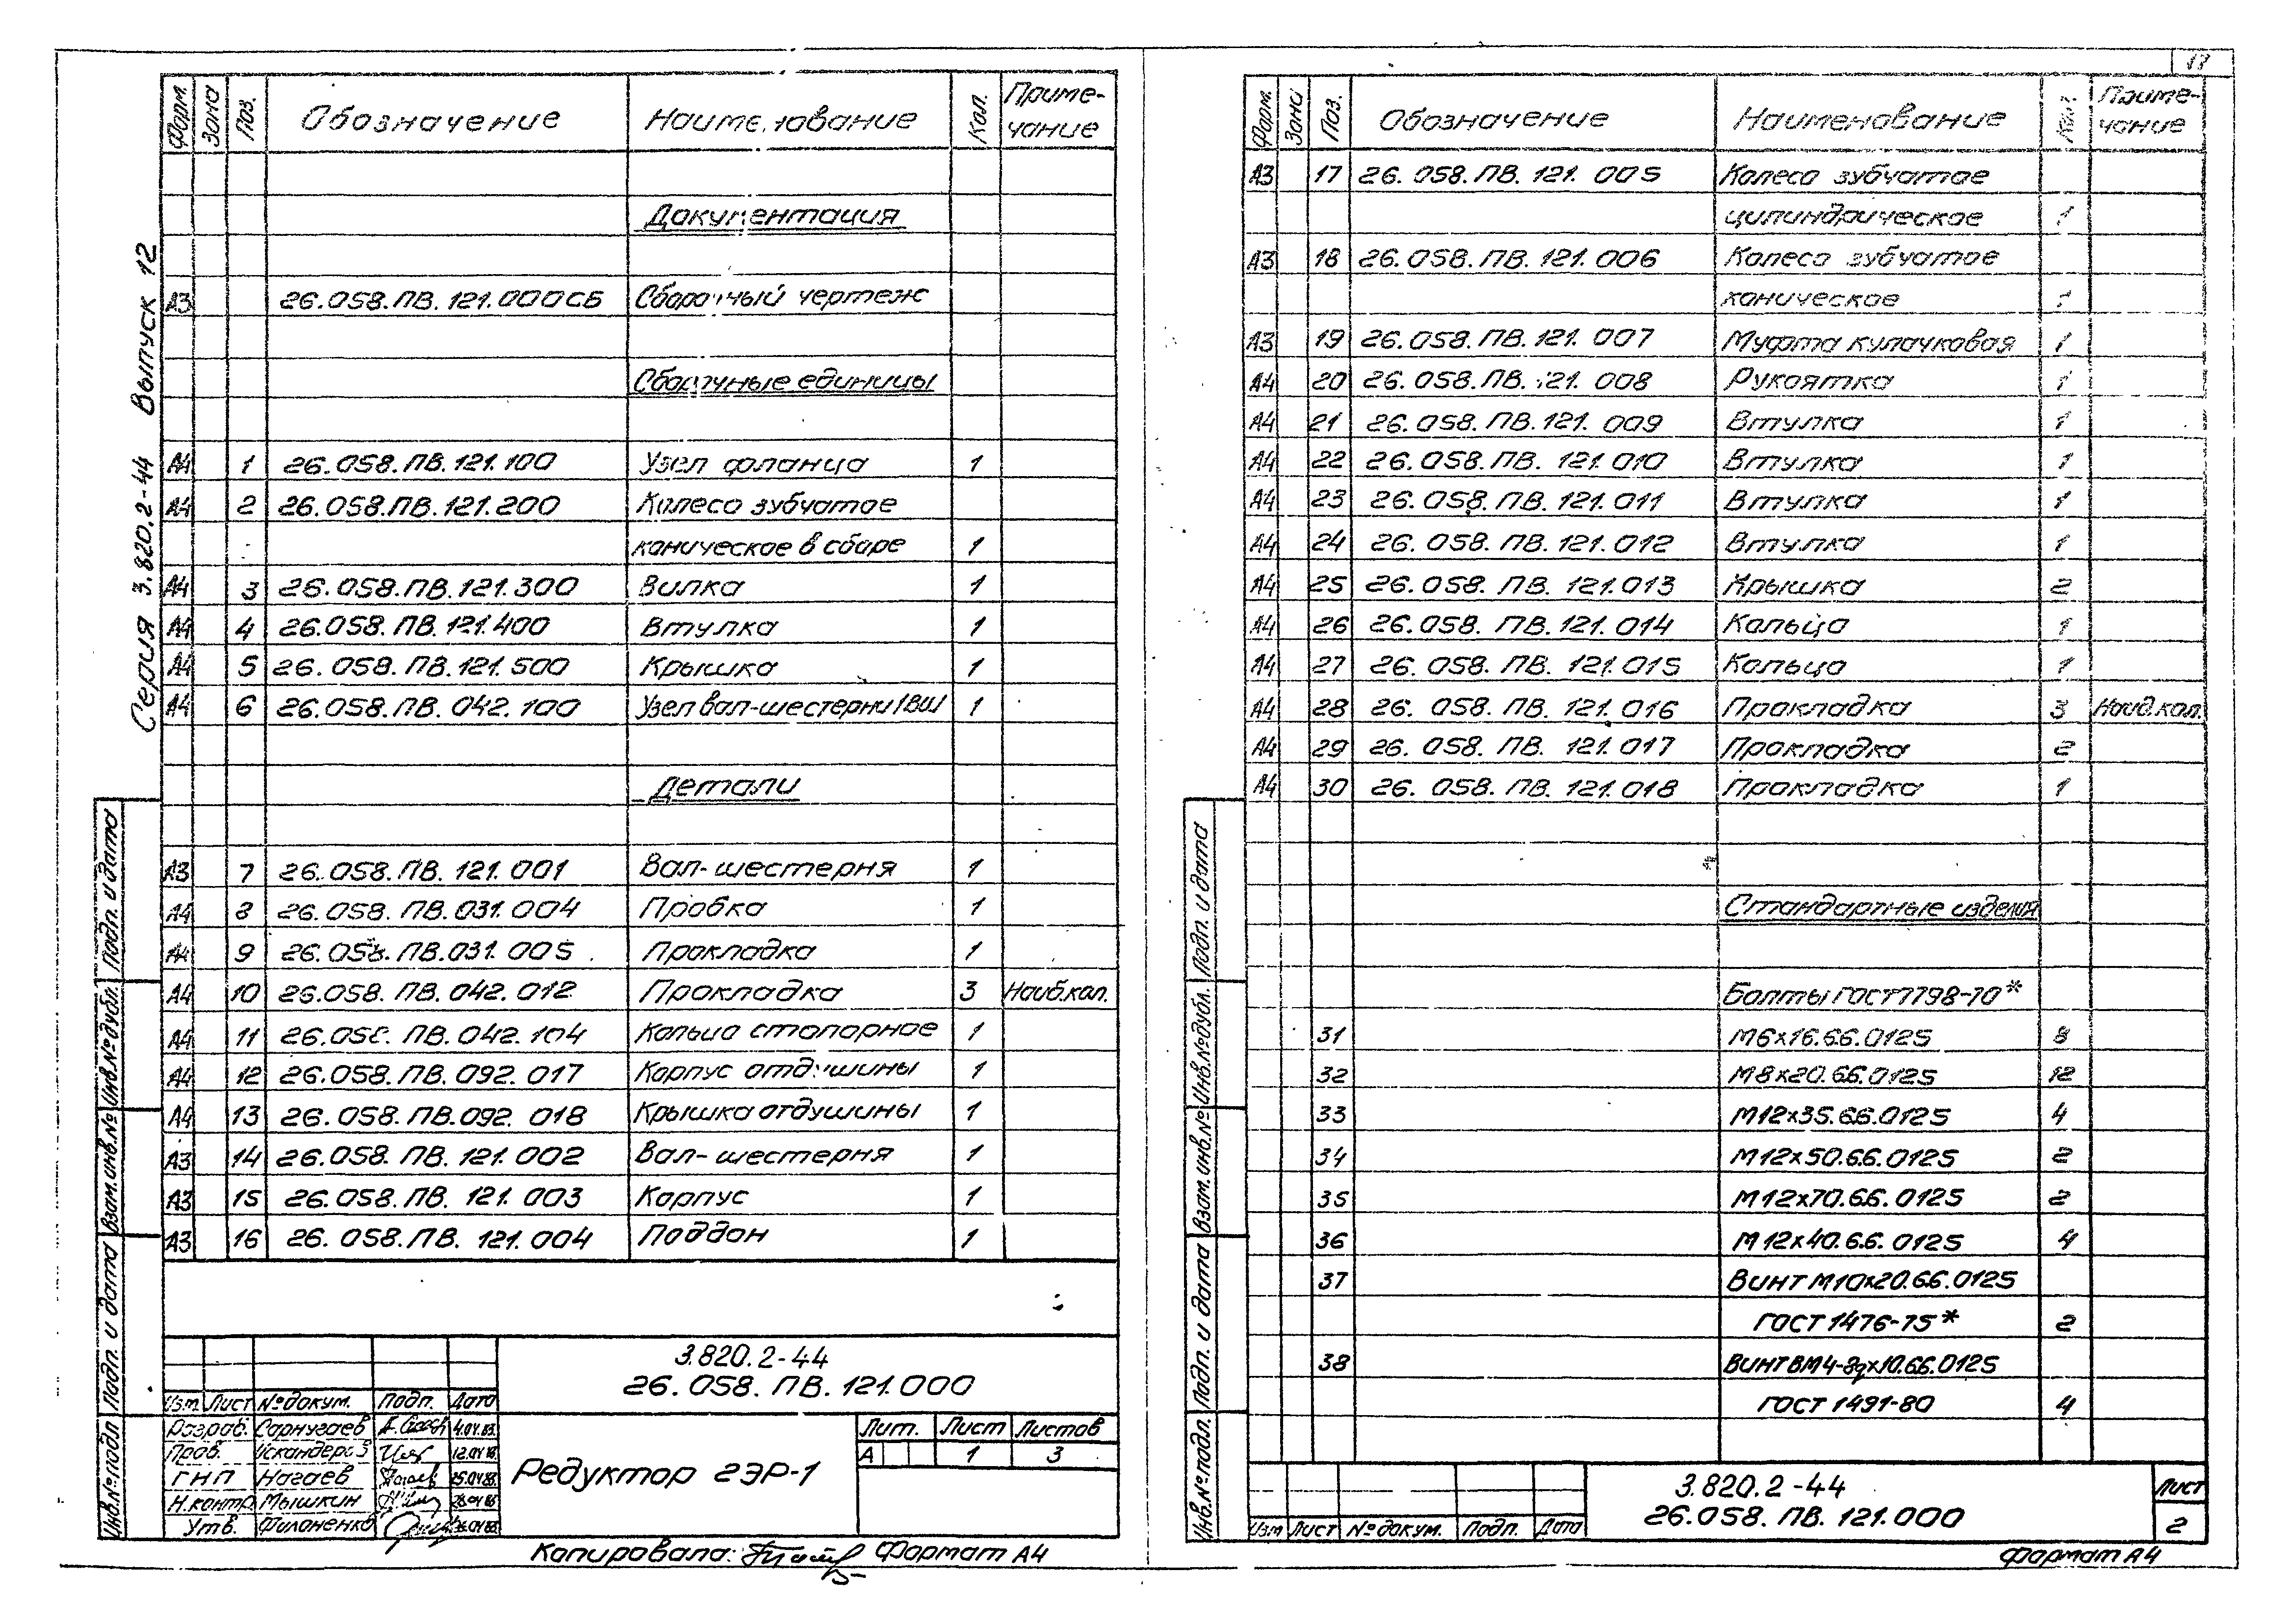 17
Серия 3.820.2-44 Выпуск 12
Форм. Зона Поз. Обозначение Наименование Кол. Приме-
чание
Документация
А3 26.058.ПВ.121.000СБ Сборочный чертеж
Сборочные единицы
А4 1 26.058.ПВ.121.100 Узел фланца 1
А4 2 26.058.ПВ.121.200 Колесо зубчатое
коническое в сборе 1
А4 3 26.058.ПВ.121.300 Вилка 1
А4 4 26.058.ПВ.121.400 Втулка 1
А4 5 26.058.ПВ.121.500 Крышка 1
А4 6 26.058.ПВ.042.100 Узел вал-шестерни 1
Детали
А3 7 26.058.ПВ.121.001 Вал-шестерня 1
А4 8 26.058.ПВ.031.004 Пробка 1
А4 9 26.058.ПВ.031.005 Прокладка 1
А4 10 26.058.ПВ.042.012 Прокладка 3 Наиб.кол.
А4 11 26.058.ПВ.042.104 Кольцо стопорное 1
А4 12 26.058.ПВ.092.017 Корпус отдушины 1
А4 13 26.058.ПВ.092.018 Крышка отдушины 1
А3 14 26.058.ПВ.121.002 Вал-шестерня 1
А3 15 26.058.ПВ.121.003 Корпус 1
А3 16 26.058.ПВ.121.004 Поддон 1
Инв.№подл Подп. и дата Взам.инв.№ Инв.№дубл. Подп. и дата
3.820.2-44
26.058.ПВ.121.000
Изм Лист №докум. Подп. Дата
Разраб. Сарнугаев
Пров.
ГНП Нагаев
Н.контр Мышкин
Утв. Филоненко
Редуктор 2ЭР-1
Лит. Лист Листов
А 1 3
Копировала: Формат А4
Форм. Зона Поз. Обозначение Наименование Кол. Приме-
чание
А3 17 26.058.ПВ.121.005 Колесо зубчатое
цилиндрическое 1
А3 18 26.058.ПВ.121.006 Колесо зубчатое
коническое 1
А3 19 26.058.ПВ.121.007 Муфта кулачковая 1
А4 20 26.058.ПВ.121.008 Рукоятка 1
А4 21 26.058.ПВ.121.009 Втулка 1
А4 22 26.058.ПВ.121.010 Втулка 1
А4 23 26.058.ПВ.121.011 Втулка 1
А4 24 26.058.ПВ.121.012 Втулка 1
А4 25 26.058.ПВ.121.013 Крышка 2
А4 26 26.058.ПВ.121.014 Кольцо 1
А4 27 26.058.ПВ.121.015 Кольцо 1
А4 28 26.058.ПВ.121.016 Прокладка 3 Наиб.кол.
А4 29 26.058.ПВ.121.017 Прокладка 2
А4 30 26.058.ПВ.121.018 Прокладка 1
Стандартные изделия
Болты ГОСТ7798-70*
31 М6х16.6.6.0125 8
32 М8х20.6.6.0125 12
33 М12х35.6.6.0125 4
34 М12х50.6.6.0125 2
35 М12х70.6.6.0125 2
36 М12х40.6.6.0125 4
37 Винт М10х20.6.6.0125
ГОСТ 1476-75* 2
38 Винт ВМ4-8gх10.6.6.0125
ГОСТ 1491-80 4
Инв.№подл. Подп. и дата Взам.инв.№ Инв.№дубл. Подп. и дата
Изм Лист №докум. Подп. Дата
3.820.2-44
26.058.ПВ.121.000
Лист
2
Формат А4